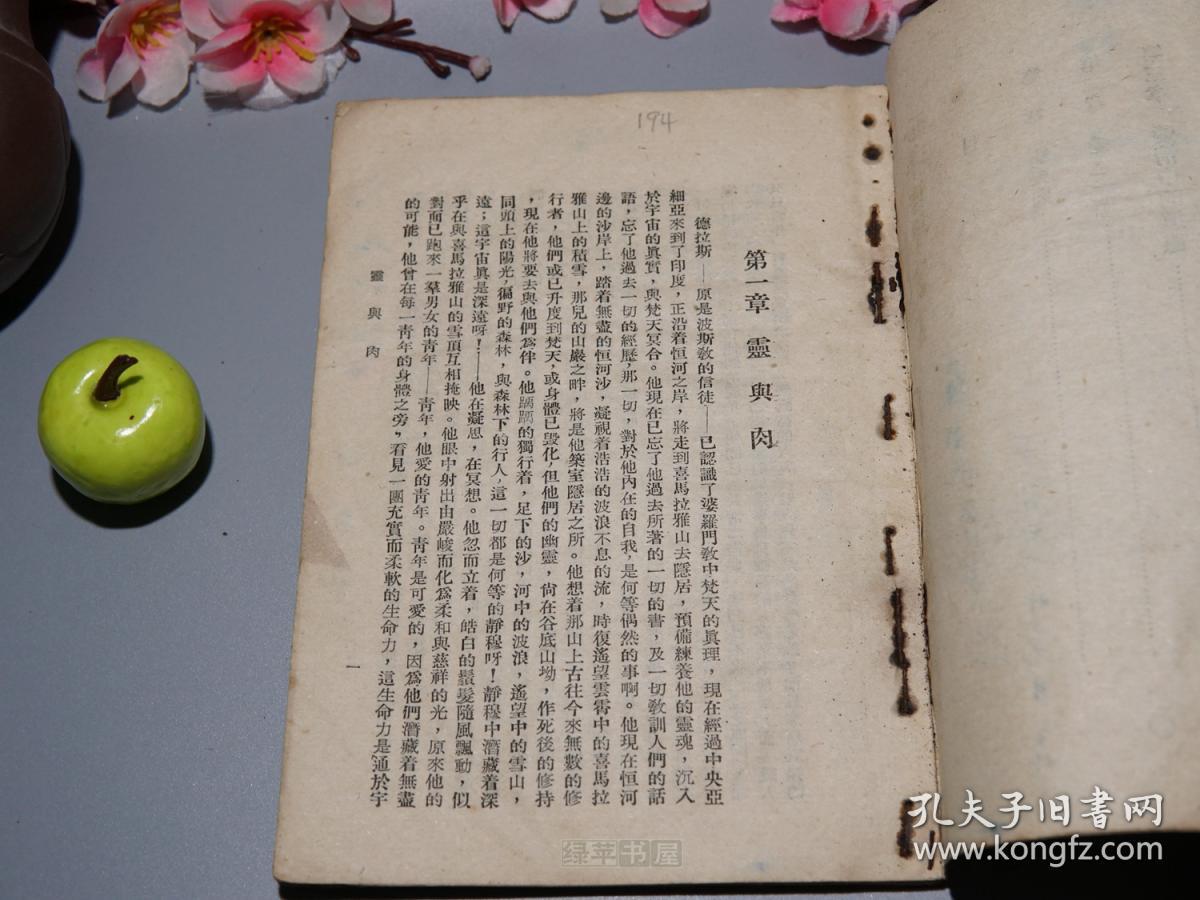 194
第一章 靈與肉
德拉斯——原是波斯教的信徒——已認識了婆羅門教中梵天的眞理，現在經過中央亞
細亞來到了印度，正沿着恒河之岸，將走到喜馬拉雅山去隱居，預備練養他的靈魂，沉入
於宇宙的眞實，與梵天冥合。他現在已忘了他過去所著的一切的書，及一切教訓人們的話
語，忘了他過去一切的經歷，那一切，對於他內在的自我，是何等偶然的事啊。他現在恒河
邊的沙岸上，踏着無盡的恒河沙，凝視着浩浩的波浪不息的流，時復遙望雲霄中的喜馬拉
雅山上的積雪，那兒的山巖之畔，將是他築室隱居之所。他想着那山上古往今來無數的修
行者，他們或已升度到梵天，或身體已毀化，但他們的幽靈，尙在谷底山坳，作死後的修持
，現在他將要去與他們爲伴。他踽踽的獨行着，足下的沙，河中的波浪，遙望中的雪山，
同頭上的陽光，徧野的森林，與森林下的行人，這一切都是何等的靜穆呀！靜穆中潛藏着深
遠；這宇宙眞是深遠呀！——他在凝思，在冥想。他忽而立着，皓白的鬚髮隨風飄動，似
乎在與喜馬拉雅山的雪頂互相掩映。他眼中射出由嚴峻而化爲柔和與慈祥的光，原來他的
對面已跑來一羣男女的靑年——靑年，他愛的靑年。靑年是可愛的，因爲他們潛藏着無盡
的可能，他曾在每一靑年的身體之旁，看見一團充實而柔軟的生命力，這生命力是通於宇
靈與肉
一
绿苹书屋
孔夫子旧书网
www.kongfz.com